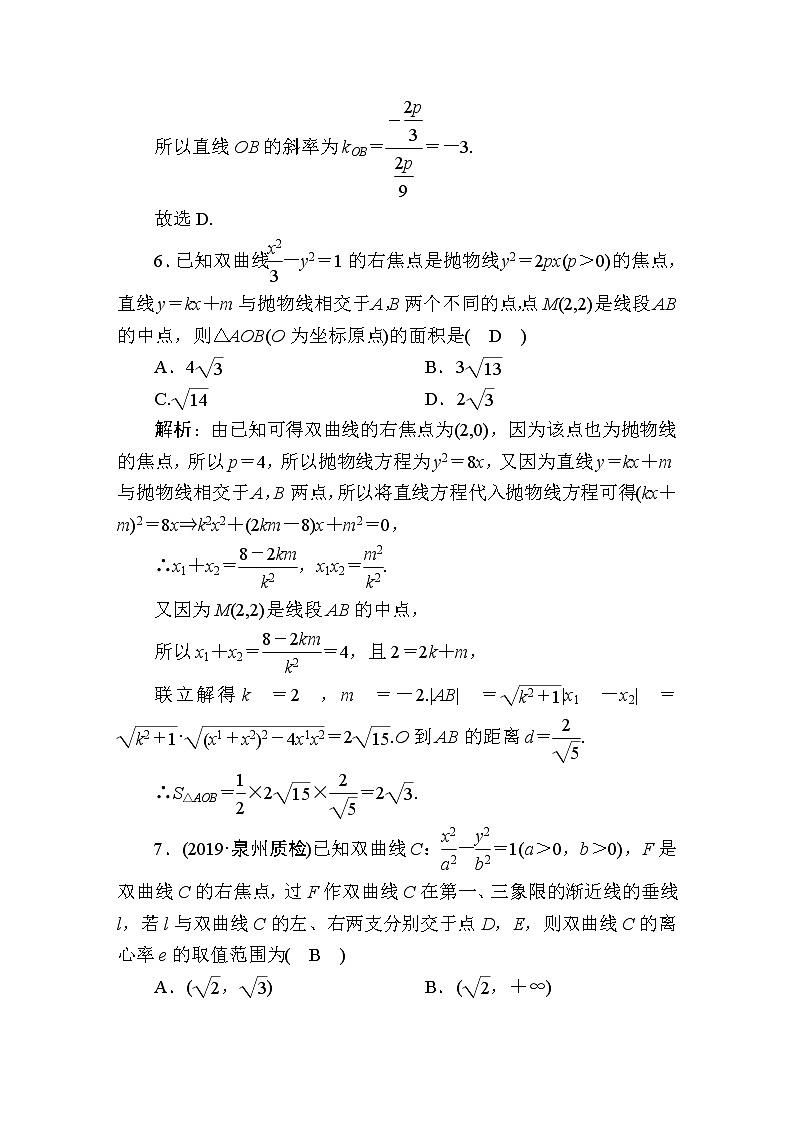 所以直线OB的斜率为kOB=\frac{-\frac{2p}{3}}{\frac{2p}{9}}=-3.
故选D.
6.已知双曲线\frac{x2}{3}-y2=1的右焦点是抛物线y2=2px(p>0)的焦点,
直线y=kx+m与抛物线相交于A,B两个不同的点,点M(2,2)是线段AB
的中点,则△AOB(O为坐标原点)的面积是( D )
A.4\sqrt{3} B.3\sqrt{13}
C.\sqrt{14} D.2\sqrt{3}
解析:由已知可得双曲线的右焦点为(2,0),因为该点也为抛物线
的焦点,所以p=4,所以抛物线方程为y2=8x,又因为直线y=kx+m
与抛物线相交于A,B两点,所以将直线方程代入抛物线方程可得(kx+
m)2=8x⇒k2x2+(2km-8)x+m2=0,
∴x1+x2=\frac{8-2km}{k2},x1x2=\frac{m2}{k2}.
又因为M(2,2)是线段AB的中点,
所以x1+x2=\frac{8-2km}{k2}=4,且2=2k+m,
联立解得k =2 ,m =-2.|AB| =\sqrt{k2+1}|x1 -x2| =
\sqrt{k2+1}·\sqrt{(x1+x2)2-4x1x2}=2\sqrt{15}.O到AB的距离d=\frac{2}{\sqrt{5}}.
∴S△AOB=\frac{1}{2}×2\sqrt{15}×\frac{2}{\sqrt{5}}=2\sqrt{3}.
7.(2019·泉州质检)已知双曲线C:\frac{x2}{a2}-\frac{y2}{b2}=1(a>0,b>0),F是
双曲线C的右焦点,过F作双曲线C在第一、三象限的渐近线的垂线
l,若l与双曲线C的左、右两支分别交于点D,E,则双曲线C的离
心率e的取值范围为( B )
A.(\sqrt{2},\sqrt{3}) B.(\sqrt{2},+∞)